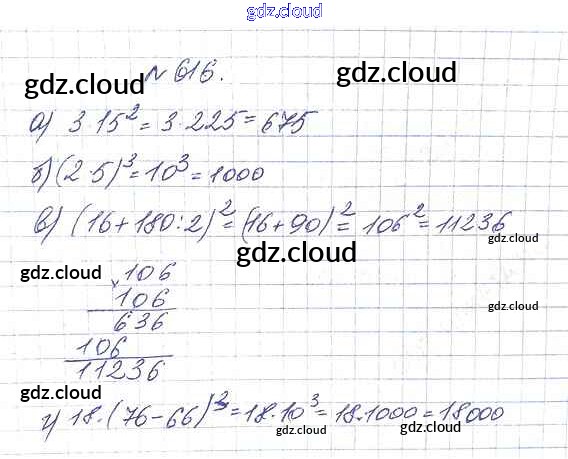 gdz.cloud
№ 616.
gdz.cloud gdz.cloud
а) 3·15²=3·225=675
б) (2·5)³=10³=1000
в) (16+180:2)²=(16+90)²=106²=11236
gdz.cloud
gdz.cloud
gdz.cloud
×106
106
gdz.cloud
636
106
11236
gdz.cloud
г) 18·(76-66)³=18·10³=18·1000=18000
gdz.cloud gdz.cloud